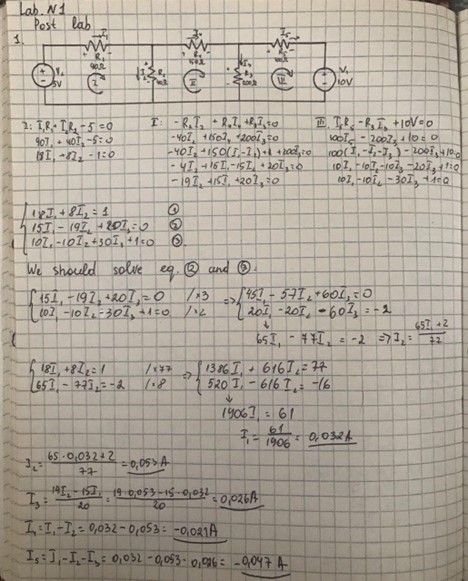 Lab. N1
Post lab
1.
I₁ I₄ I₅
R₁ R₄ R₅
90Ω 150Ω 100Ω
V₁ 5V I₂ R₂ 40Ω I₃ R₃ 200Ω 10V
I II III
I: I₁R₁+I₂R₂-5=0
90I₁+40I₂-5=0
18I₁+8I₂-1=0
II: -R₂I₂+R₄I₄+R₃I₃=0
-40I₂+150I₄+200I₃=0
-40I₂+150(I₁-I₂)+200I₃=0
-4I₂+15I₁-15I₂+20I₃=0
-19I₂+15I₁+20I₃=0
III. I₅R₅-R₃I₃+10V=0
100I₅-200I₃+10=0
100(I₁-I₂-I₃)-200I₃+10=0
10I₁-10I₂-10I₃-20I₃+1=0
10I₁-10I₂-30I₃+1=0
18I₁+8I₂=1 ①
15I₁-19I₂+20I₃=0 ②
10I₁-10I₂+30I₃+1=0 ③.
We should solve eq. ② and ③.
15I₁-19I₂+20I₃=0 /×3 => 45I₁-57I₂+60I₃=0
10I₁-10I₂-30I₃+1=0 /×2 20I₁-20I₂-60I₃=-2
65I₁-77I₂=-2 => I₂=(65I₁+2)/77
18I₁+8I₂=1 /×77 => 1386I₁+616I₂=77
65I₁-77I₂=-2 /×8 520I₁-616I₂=-16
1906I₁=61
I₁=61/1906=0,032A
I₂=(65·0,032+2)/77=0,053A
I₃=(19I₂-15I₁)/20=(19·0,053-15·0,032)/20=0,026A
I₄=I₁-I₂=0,032-0,053=-0,021A
I₅=I₁-I₂-I₃=0,032-0,053-0,026=-0,047A